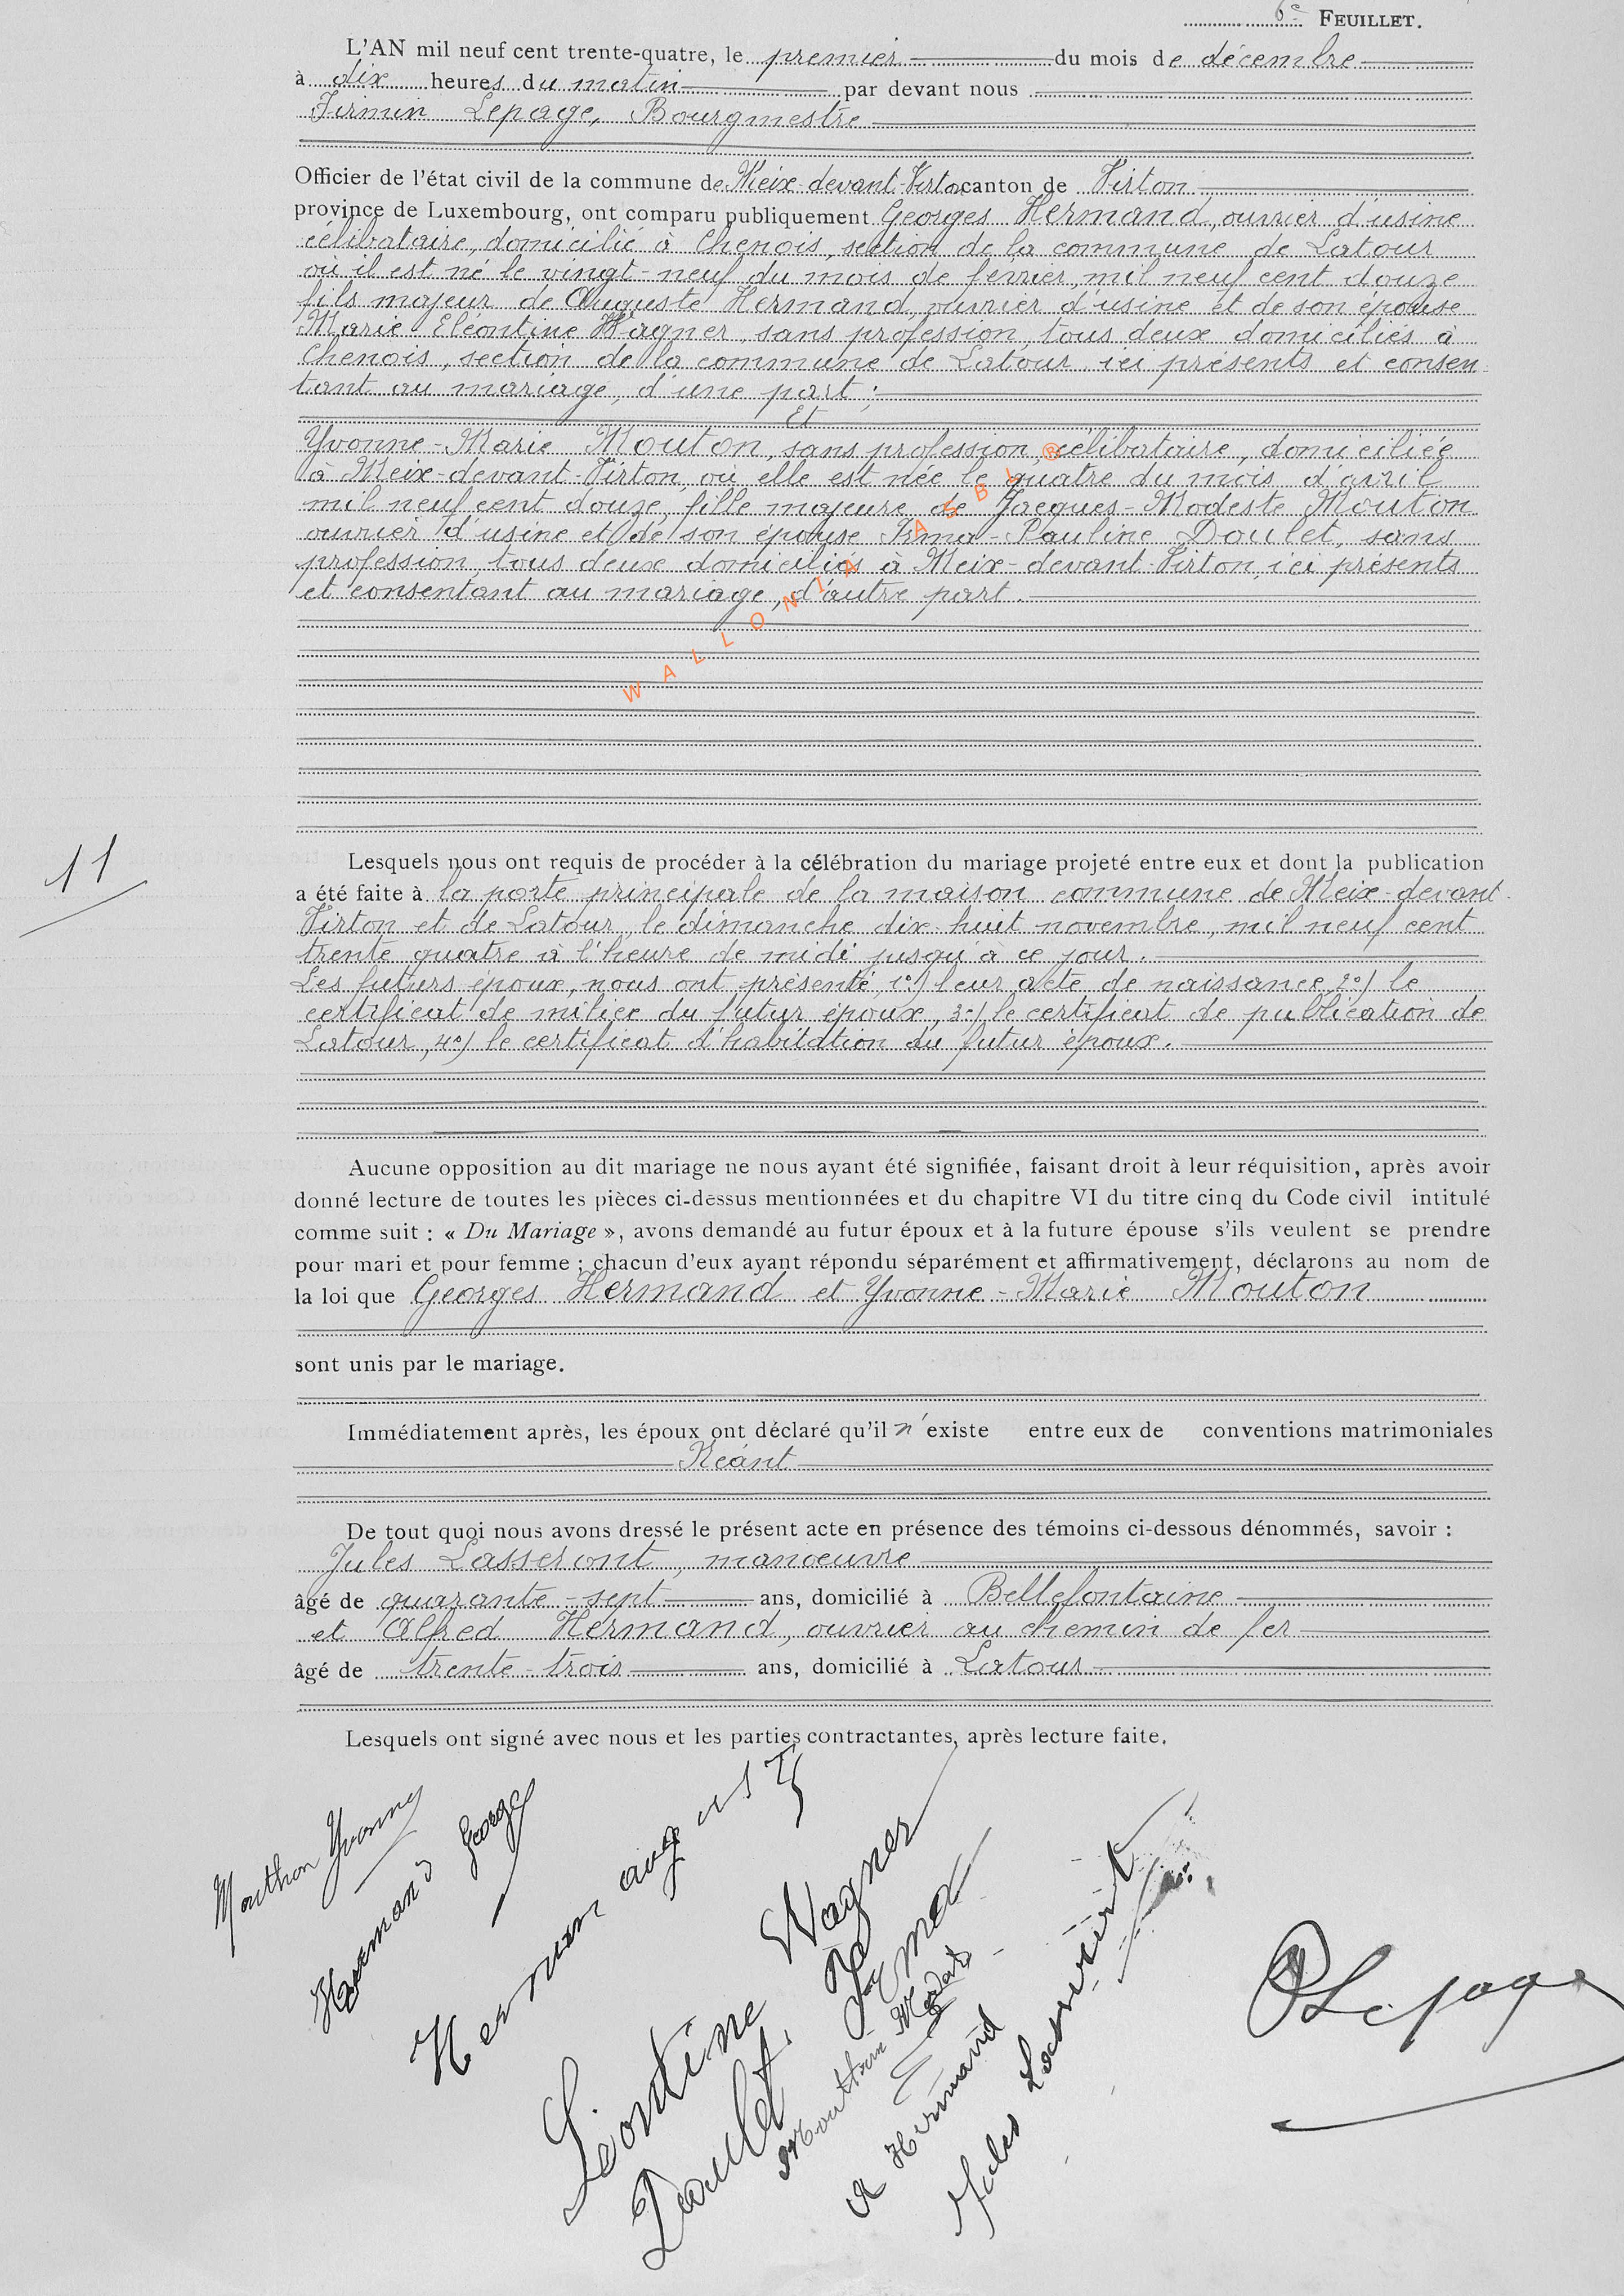 6e FEUILLET.
L'AN mil neuf cent trente-quatre, le premier du mois de décembre
à dix heures du matin par devant nous
Firmin Lepage, Bourgmestre
Officier de l'état civil de la commune de Meix-devant-Virton canton de Virton
province de Luxembourg, ont comparu publiquement Georges Hermand, ouvrier d'usine
célibataire, domicilié à Chenois, section de la commune de Latour
où il est né le vingt-neuf du mois de février, mil neuf cent douze
fils majeur de Auguste Hermand, ouvrier d'usine et de son épouse
Marie Eléontine Wagner, sans profession, tous deux domiciliés à
Chenois, section de la commune de Latour ici présents et consen-
tant au mariage, d'une part;
Et
Yvonne-Marie Mouton, sans profession, célibataire, domiciliée
à Meix-devant-Virton, où elle est née le quatre du mois d'avril
mil neuf cent douze, fille majeure de Jacques-Modeste Mouton
ouvrier d'usine et de son épouse Irma-Pauline Doulet, sans
profession, tous deux domiciliés à Meix-devant-Virton, ici présents
et consentant au mariage, d'autre part.
WALLONIA ASBL ®
11
Lesquels nous ont requis de procéder à la célébration du mariage projeté entre eux et dont la publication
a été faite à la porte principale de la maison commune de Meix-devant-
Virton et de Latour, le dimanche dix-huit novembre, mil neuf cent
trente quatre à l'heure de midi jusqu'à ce jour.
Les futurs époux, nous ont présenté, 1º) leur acte de naissance, 2º) le
certificat de milice du futur époux, 3º) le certificat de publication de
Latour, 4º) le certificat d'habitation du futur époux.
Aucune opposition au dit mariage ne nous ayant été signifiée, faisant droit à leur réquisition, après avoir
donné lecture de toutes les pièces ci-dessus mentionnées et du chapitre VI du titre cinq du Code civil intitulé
comme suit : « Du Mariage », avons demandé au futur époux et à la future épouse s'ils veulent se prendre
pour mari et pour femme ; chacun d'eux ayant répondu séparément et affirmativement, déclarons au nom de
la loi que Georges Hermand et Yvonne-Marie Mouton
sont unis par le mariage.
Immédiatement après, les époux ont déclaré qu'il n'existe entre eux de conventions matrimoniales
Néant
De tout quoi nous avons dressé le présent acte en présence des témoins ci-dessous dénommés, savoir :
Jules Lasseront, manoeuvre
âgé de quarante-sept ans, domicilié à Bellefontaine
et Alfred Hermand, ouvrier au chemin de fer
âgé de trente-trois ans, domicilié à Latour
Lesquels ont signé avec nous et les parties contractantes, après lecture faite.
Mouthon Yvonne
Hermand Georges
Léontine Wagner
Doulet Irma
A Hermand
Lepage